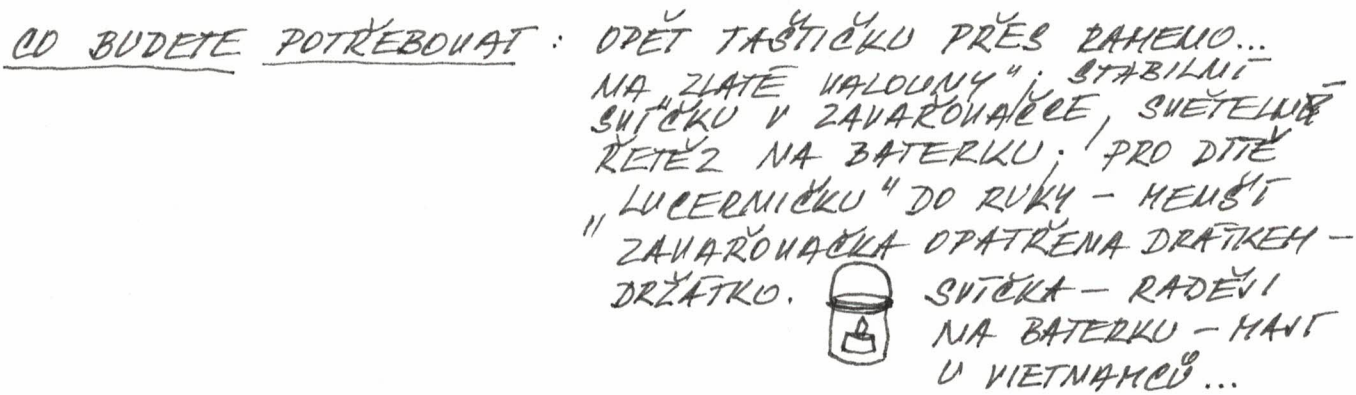 CO BUDETE POTŘEBOVAT: OPĚT TAŠTIČKU PŘES RAMENO...
NA „ZLATÉ VALOUNY“; STABILNÍ
SVÍČKU V ZAVAŘOVAČCE, SVĚTELNÝ
ŘETĚZ NA BATERKU; PRO DÍTĚ
„LUCERNIČKU“ DO RUKY – MENŠÍ
ZAVAŘOVAČKA OPATŘENA DRÁTKEM –
DRŽÁTKO. SVÍČKA – RADĚJI
NA BATERKU – MAJÍ
U VIETNAMCŮ...